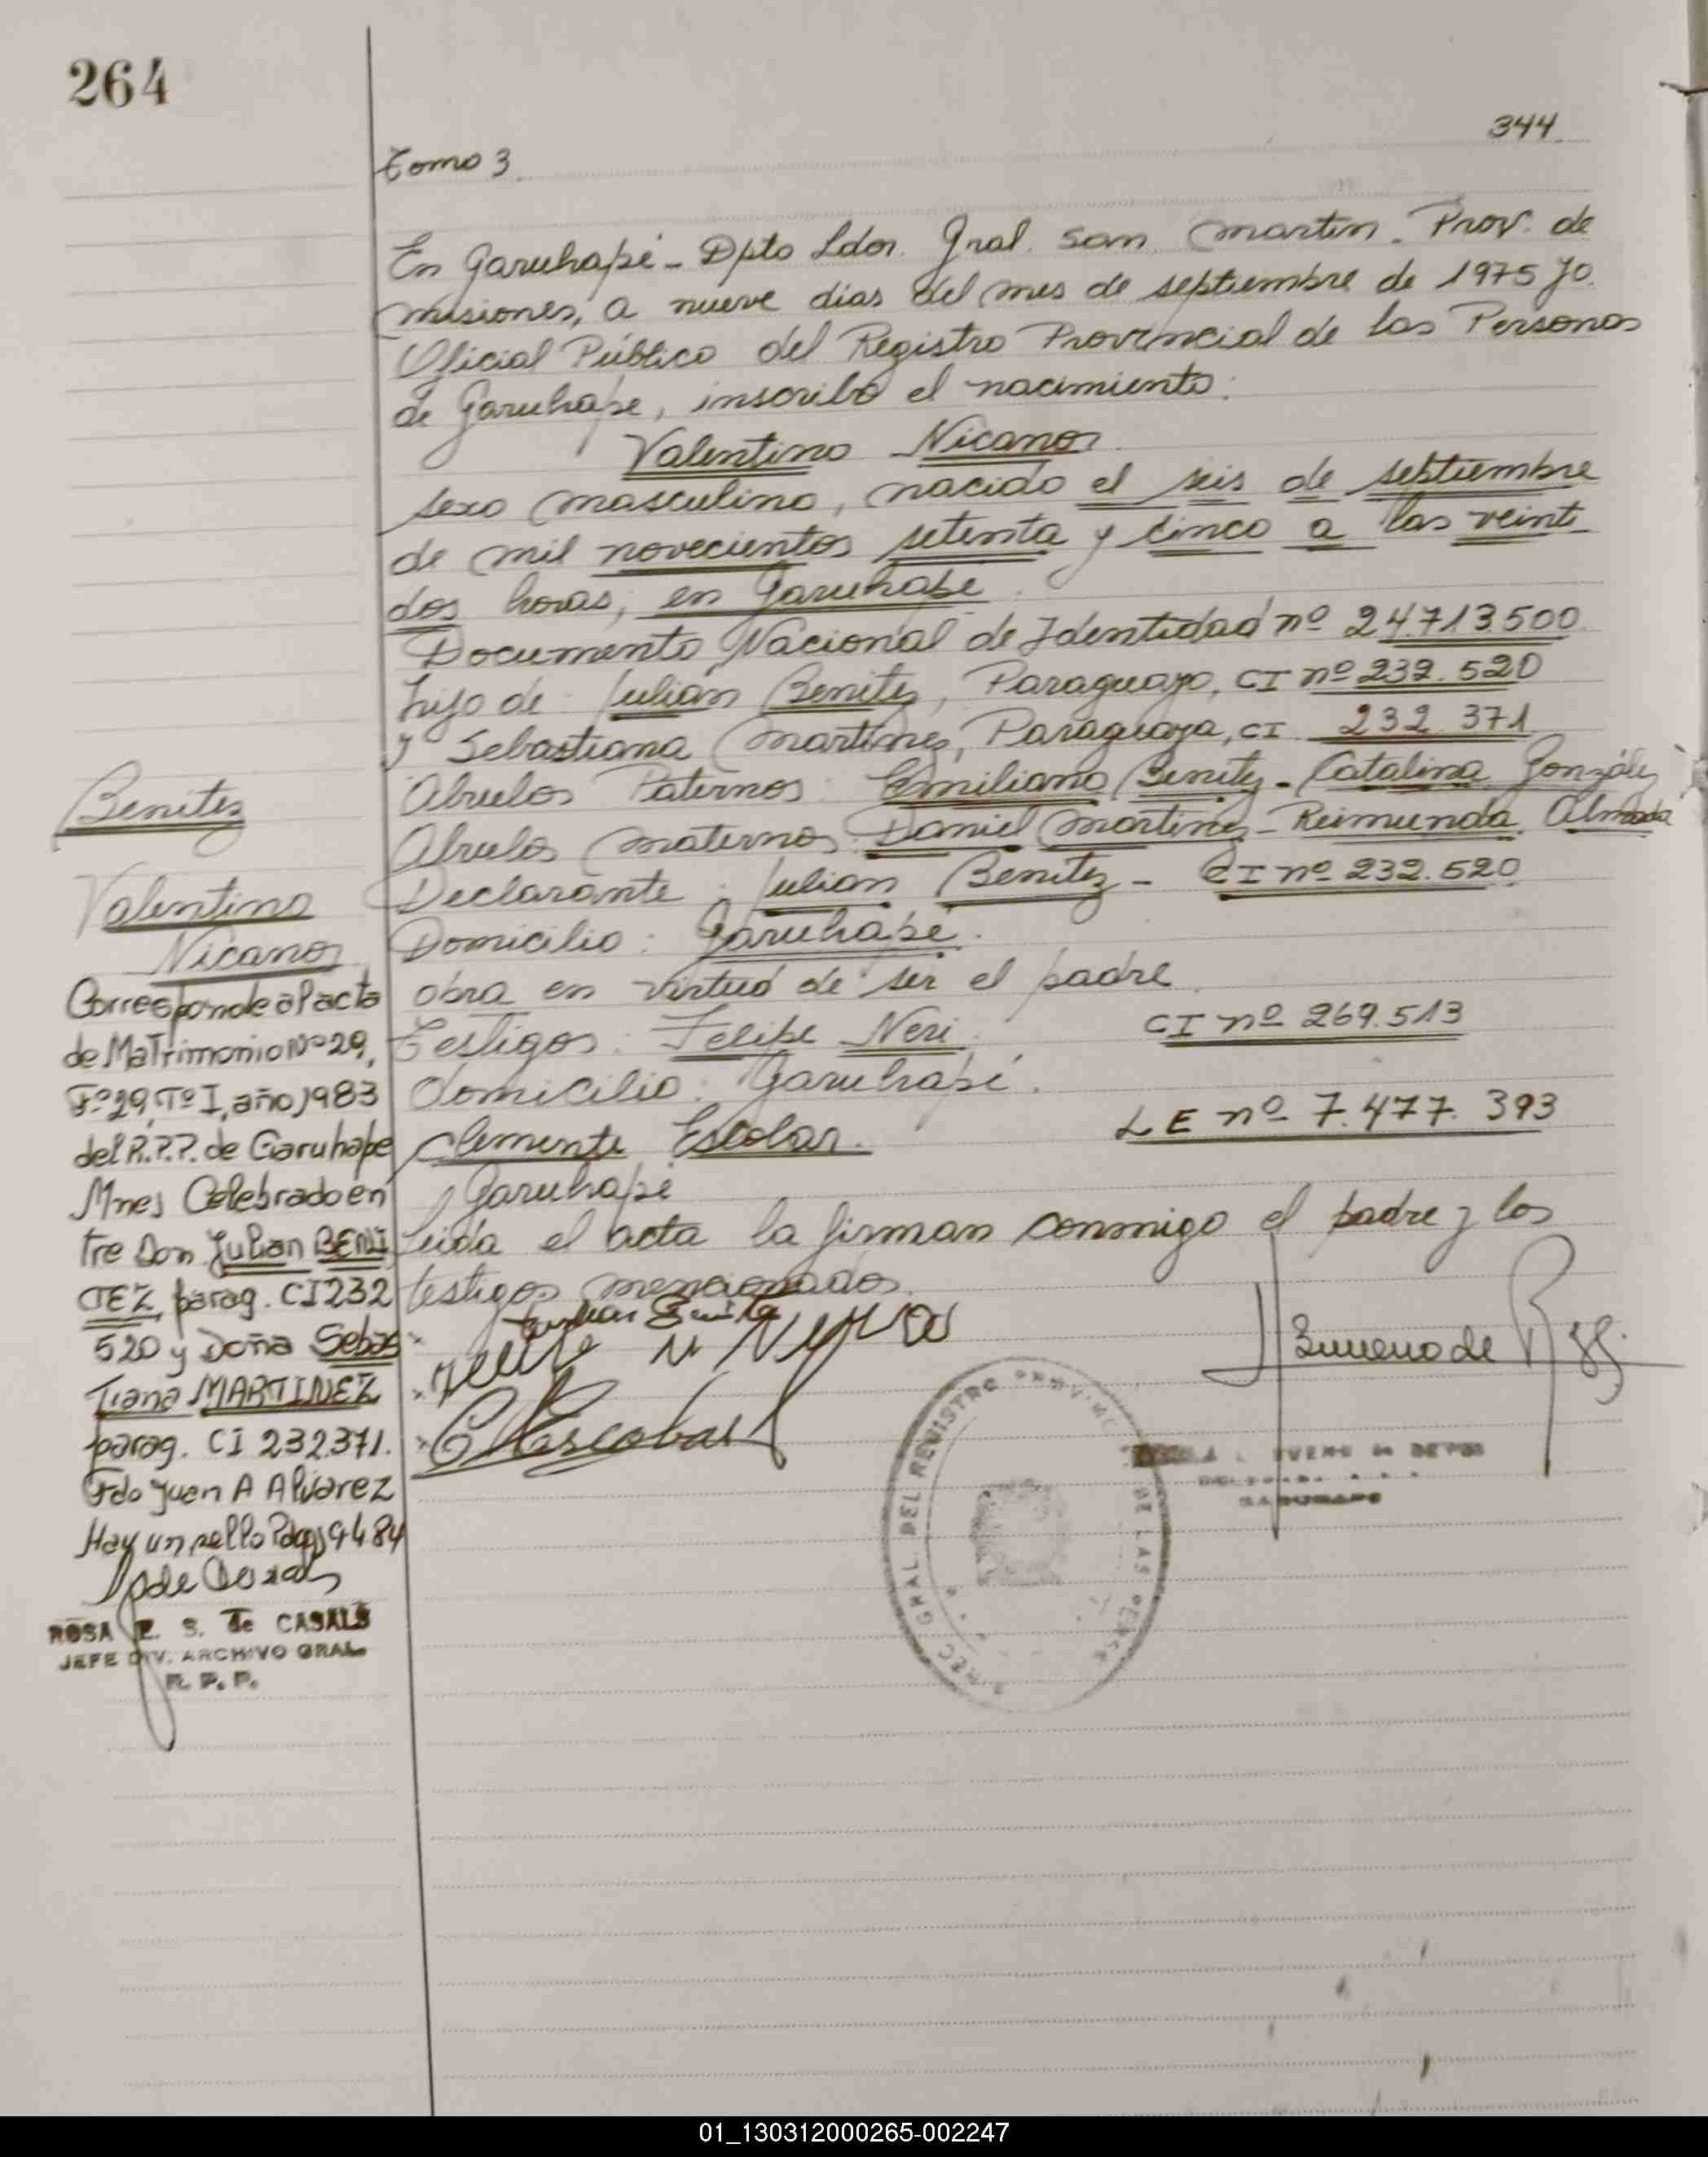 264
344
Tomo 3.
En Garuhapé - Dpto Ldor. Gral. San Martin. Prov. de
Misiones, a nueve dias del mes de septiembre de 1975 yo.
Oficial Público del Registro Provincial de las Personas
de Garuhape, inscribo el nacimiento:
Valentino Nicanor
sexo masculino, nacido el seis de septiembre
de mil novecientos setenta y cinco a las veinti
dos horas, en Garuhape.
Documento Nacional de Identidad nº 24.713.500
hijo de: Julián Benitez, Paraguayo, CI nº 232.520
y Sebastiana Martinez, Paraguaya, CI 232.371
Abuelos Paternos: Emiliano Benitez - Catalina González
Abuelos Maternos: Daniel Martinez - Reimunda Almada
Declarante: Julian Benitez - CI nº 232.520
Domicilio: Garuhapé.
obra en virtud de ser el padre.
Testigos: Felipe Neri. CI nº 269.513
domicilio: Garuhapé.
Clemente Escobar. LE nº 7.477.393
Garuhapé
Leida el acta la firman conmigo el padre y los
testigos mencionados.
Julian Benitez
Felipe N
C Escobar
Bueno de
GARUHAPE
REC. GRAL. DEL REGISTRO PROVINCIAL DE LAS PERSO
Benitez
Valentino
Nicanor
Corresponde al acta
de Matrimonio Nº 29,
Fº 29, Tº I, año 1983
del R.P.P. de Garuhape
Mnes Celebrado en
tre Don Julian BENI
TEZ, parag. CI 232
520 y Doña Sebas
tiana MARTINEZ
parag. CI 232.371.
Fdo Juan A Alvarez
Hay un sello Pdas 9484
ROSA E. S. de CASALS
JEFE DIV. ARCHIVO GRAL.
R. P. P.
01_130312000265-002247